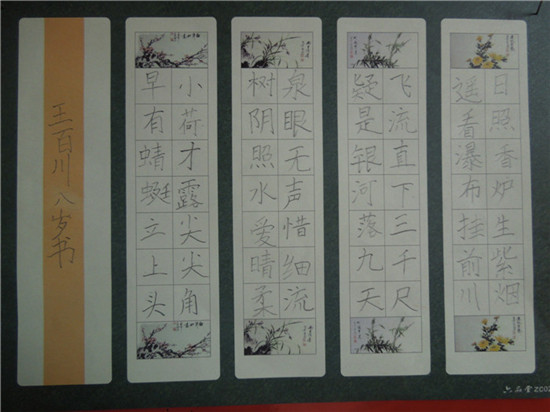 日照香炉生紫烟
遥看瀑布挂前川
飞流直下三千尺
疑是银河落九天
泉眼无声惜细流
树阴照水爱晴柔
小荷才露尖尖角
早有蜻蜓立上头
王百川 八岁书
六品堂